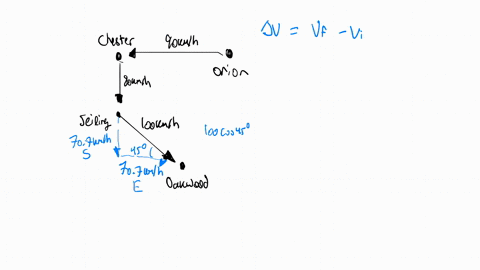 ΔV = Vf - Vi
Chester
90km/h
Orion
80km/h
Jeiling
100km/h
70.7km/h
S
45°
100cos45°
70.7km/h
E
Oakwood